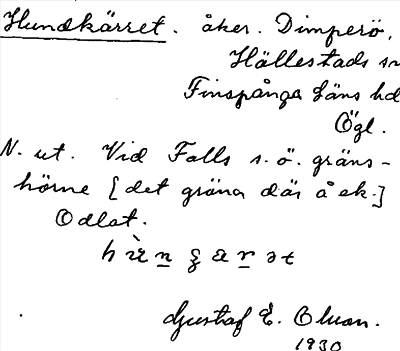 Hundkärret. åker. Dimperö,
Hällestads sn
Finspånga läns hd
Ögl.
N. ut. Vid Falls s. ö. gräns-
hörne [det gräna där å ek.]
Odlat.
Gustaf E. Oluan.
1930